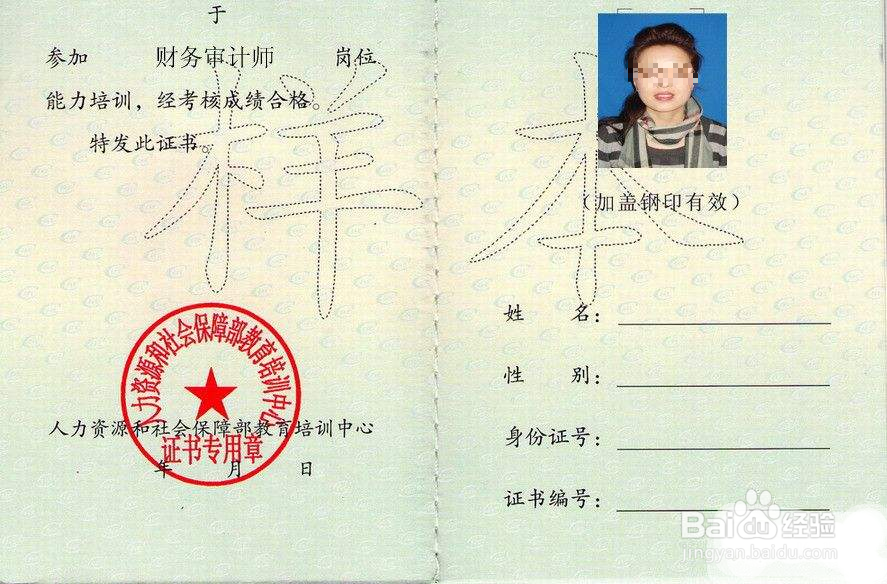 于
参加 财务审计师 岗位
能力培训，经考核成绩合格。
特发此证书。
样本
人力资源和社会保障部教育培训中心
证书专用章
人力资源和社会保障部教育培训中心
年 月 日
（加盖钢印有效）
姓 名：
性 别：
身份证号：
证书编号：
Baidu 经验
jingyan.baidu.com